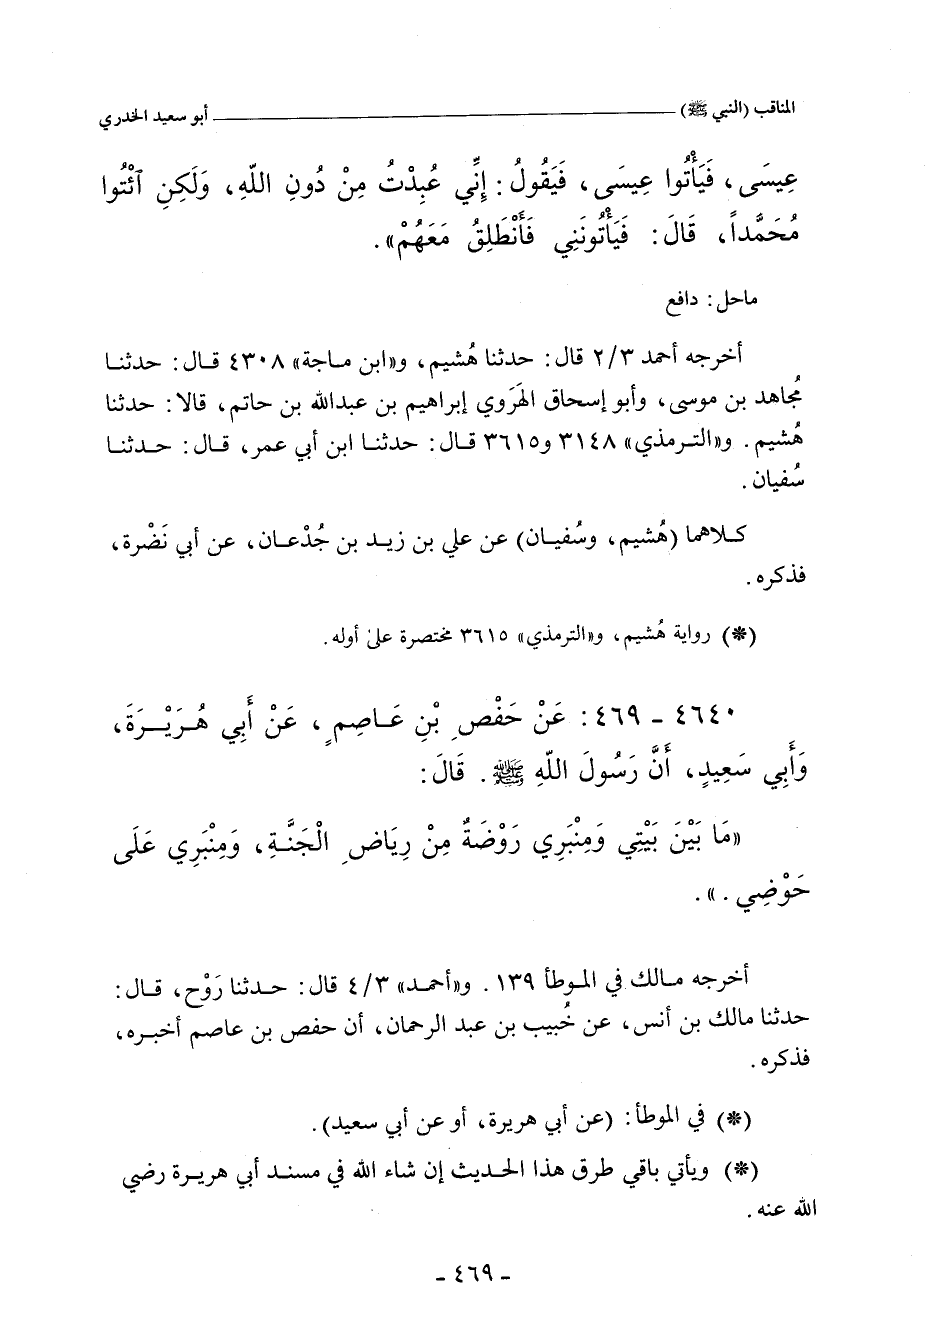 المناقب (النبي ﷺ) ــــــــــــــــ أبو سعيد الخدري
عِيسَى، فَيَأْتُوا عِيسَى، فَيَقُولُ: إِنِّي عُبِدْتُ مِنْ دُونِ اللّهِ، وَلَكِنِ ٱئْتُوا
مُحَمَّداً، قَالَ: فَيَأْتُونَنِي فَأَنْطَلِقُ مَعَهُمْ».
ماحل: دافع
أخرجه أحمد ٢/٣ قال: حدثنا هُشيم، و«ابن ماجة» ٤٣٠٨ قال: حدثنا
مُجاهد بن موسى، وأبو إسحاق الهَرَوي إبراهيم بن عبدالله بن حاتم، قالا: حدثنا
هُشيم. و«الترمذي» ٣١٤٨ و٣٦١٥ قال: حدثنا ابن أبي عمر، قال: حدثنا
سُفيان.
كلاهما (هُشيم، وسُفيان) عن علي بن زيد بن جُدْعان، عن أبي نَضْرة،
فذكره.
(*) رواية هُشيم، و«الترمذي» ٣٦١٥ مختصرة على أوله.
٤٦٤٠ - ٤٦٩: عَنْ حَفْصِ بْنِ عَاصِمٍ، عَنْ أَبِي هُرَيْرَةَ،
وَأَبِي سَعِيدٍ، أَنَّ رَسُولَ اللّهِ ﷺ. قَالَ:
«مَا بَيْنَ بَيْتِي وَمِنْبَرِي رَوْضَةٌ مِنْ رِيَاضِ الْجَنَّةِ، وَمِنْبَرِي عَلَى
حَوْضِي.».
أخرجه مالك في الموطأ ١٣٩. و«أحمد» ٤/٣ قال: حدثنا رَوْح، قال:
حدثنا مالك بن أنس، عن خُبيب بن عبد الرحمان، أن حفص بن عاصم أخبره،
فذكره.
(*) في الموطأ: (عن أبي هريرة، أو عن أبي سعيد).
(*) ويأتي باقي طرق هذا الحديث إن شاء الله في مسند أبي هريرة رضي
الله عنه.
- ٤٦٩ -